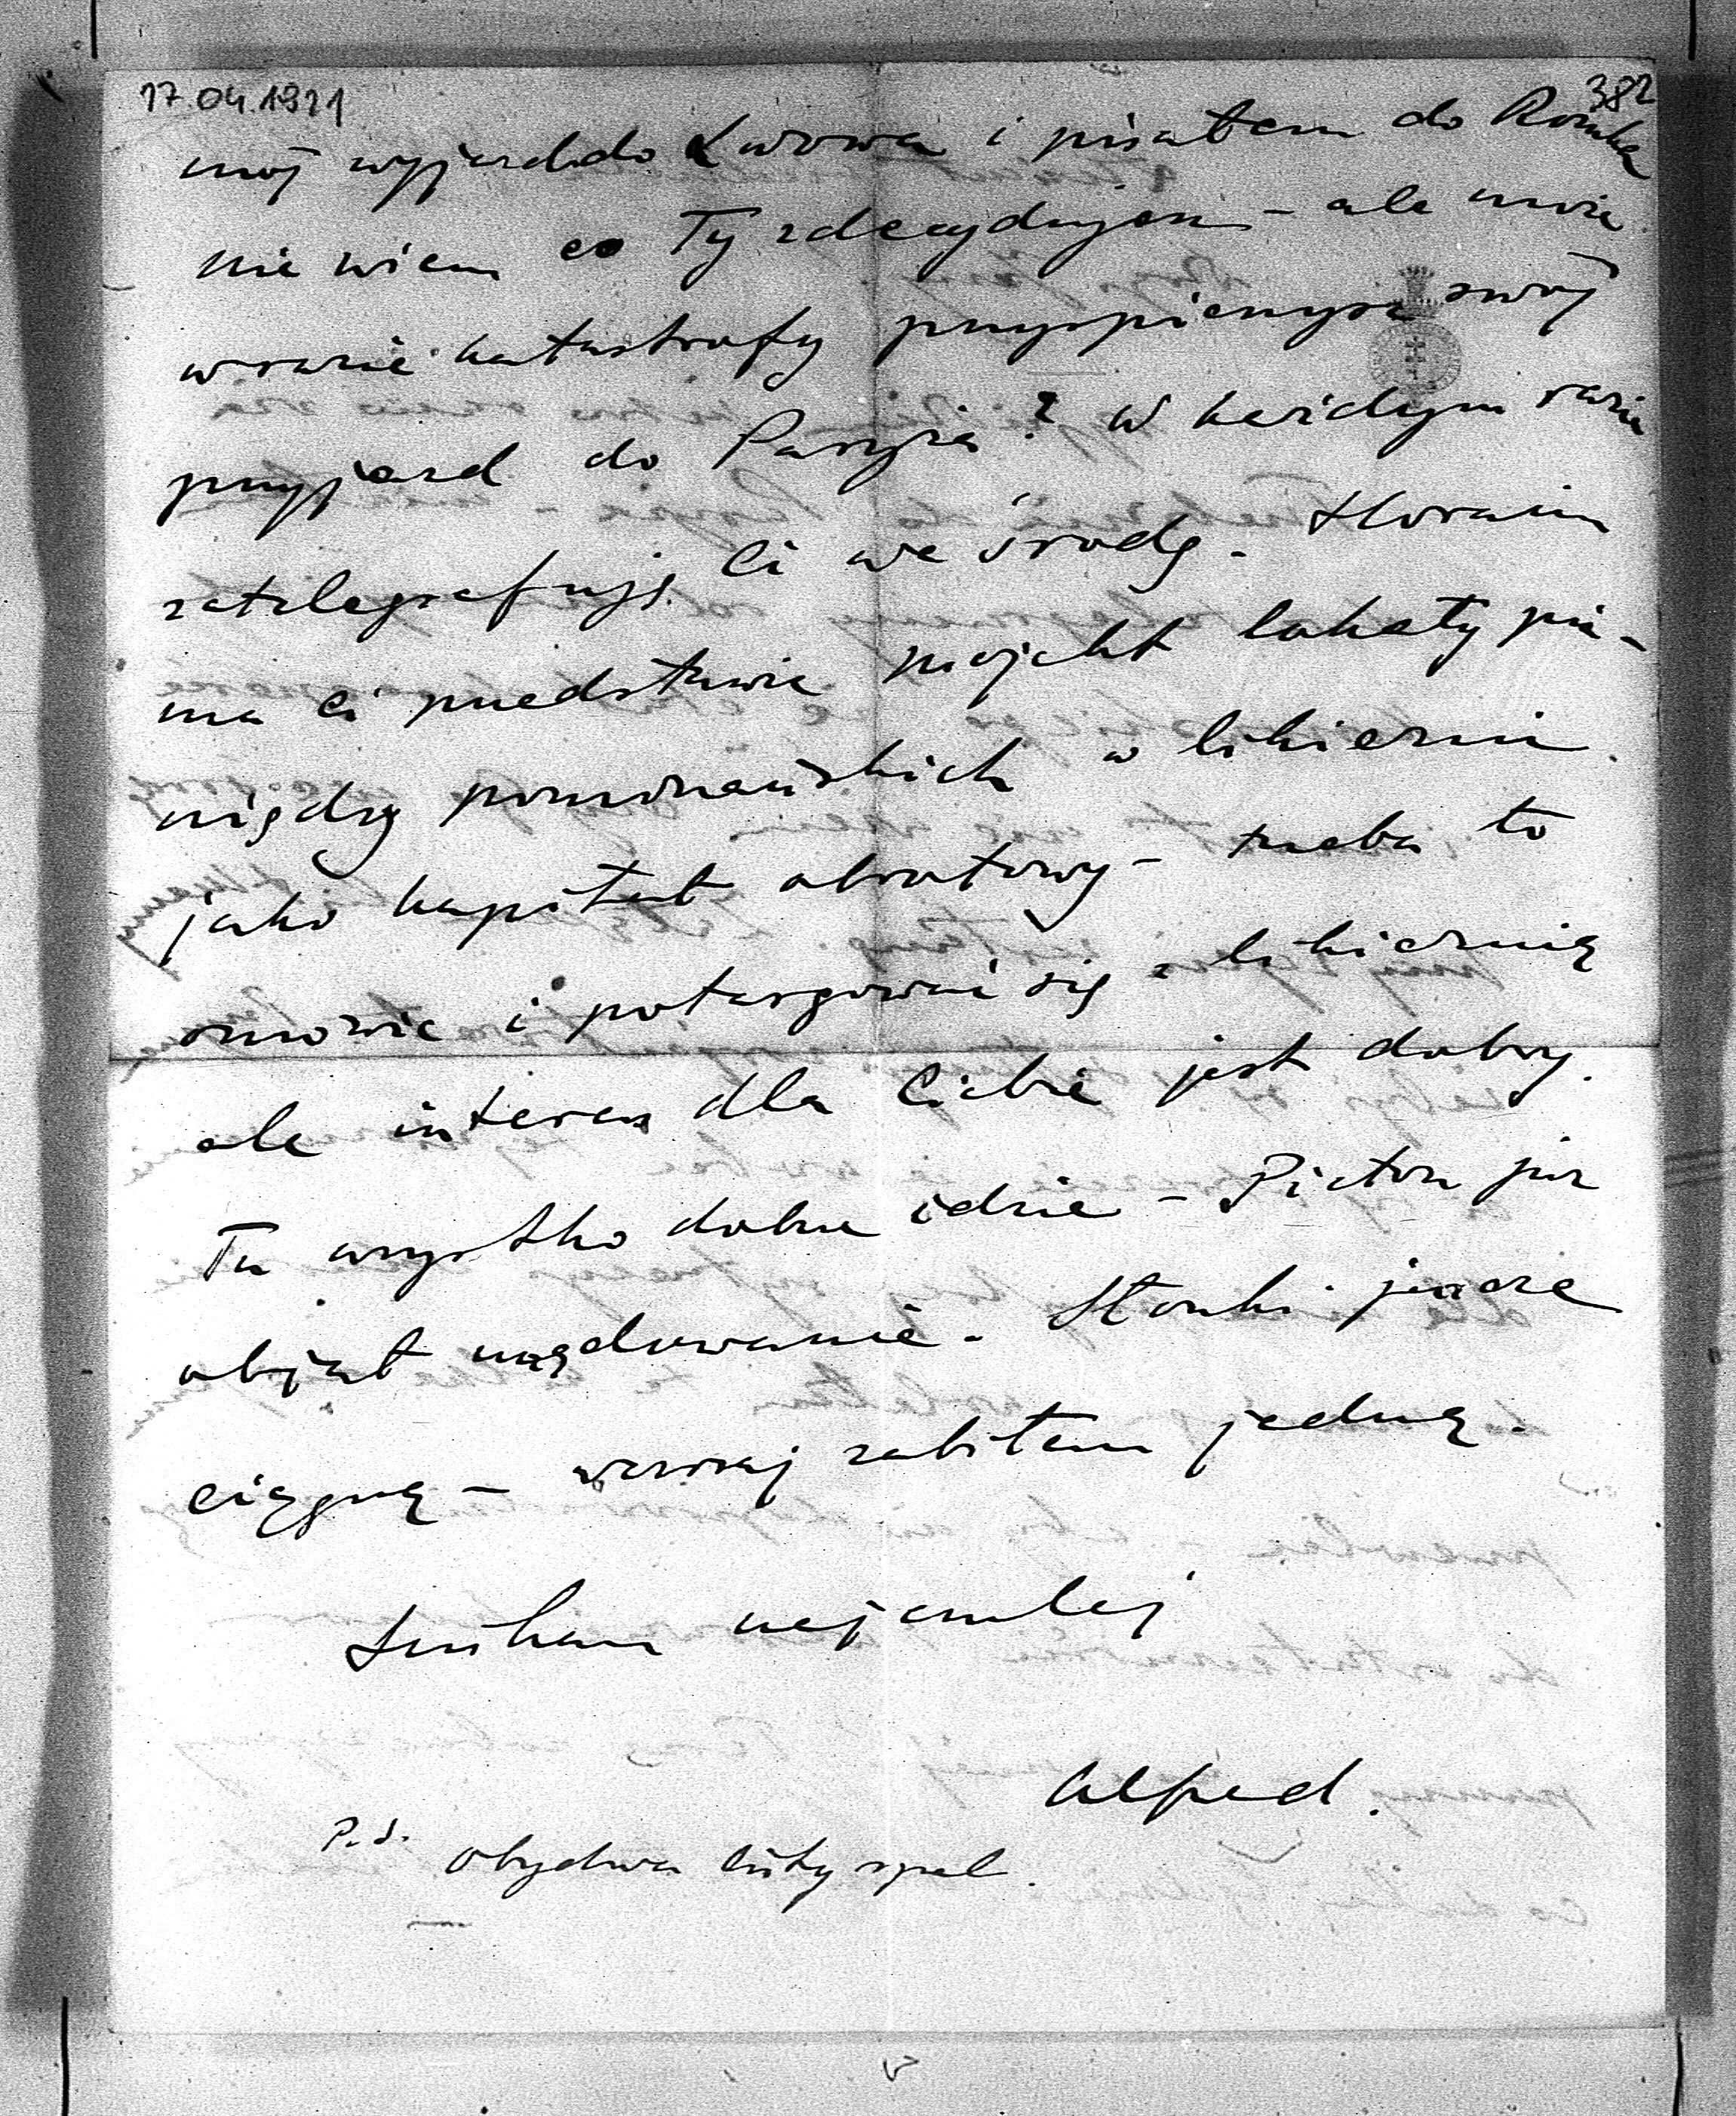 17.04.1921
382
mój wyjazd do Lwowa i pisałem do Romka
nie wiem co Ty zdecydujesz - ale może
w razie katastrofy przyspieszysz swój
przyjazd do Paryża? W każdym razie
zatelegrafuję Ci we środę. Horain
ma Ci przedstawić projekt lokaty pie-
niędzy pomorzańskich w likierni
jako kapitał obrotowy - trzeba to
omówić i potargować się z likiernią
ale interes dla Ciebie jest dobry.
Tu wszystko dobrze idzie - Picton już
objął urzędowanie. Słonki jeszcze
ciągną - wczoraj zabiłem jedną.
Ściskam najczulej
Alfred.
P.S. Obydwa listy spal.